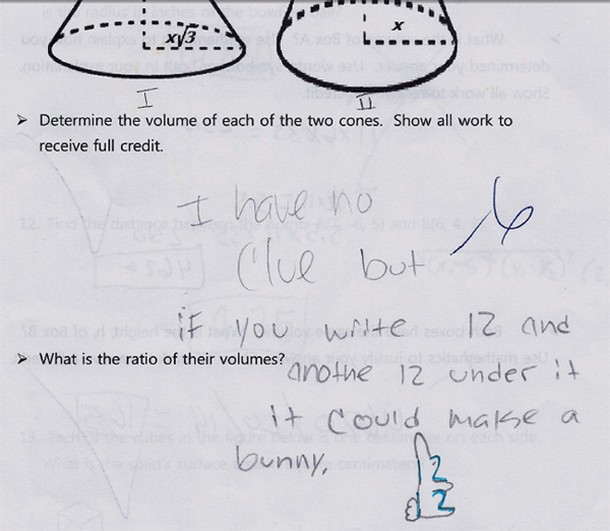 x√3
x
I
II
➤ Determine the volume of each of the two cones. Show all work to
receive full credit.
I have no
-6
Clue but
if you write 12 and
➤ What is the ratio of their volumes?
anothe 12 under it
it could make a
bunny.
12
12